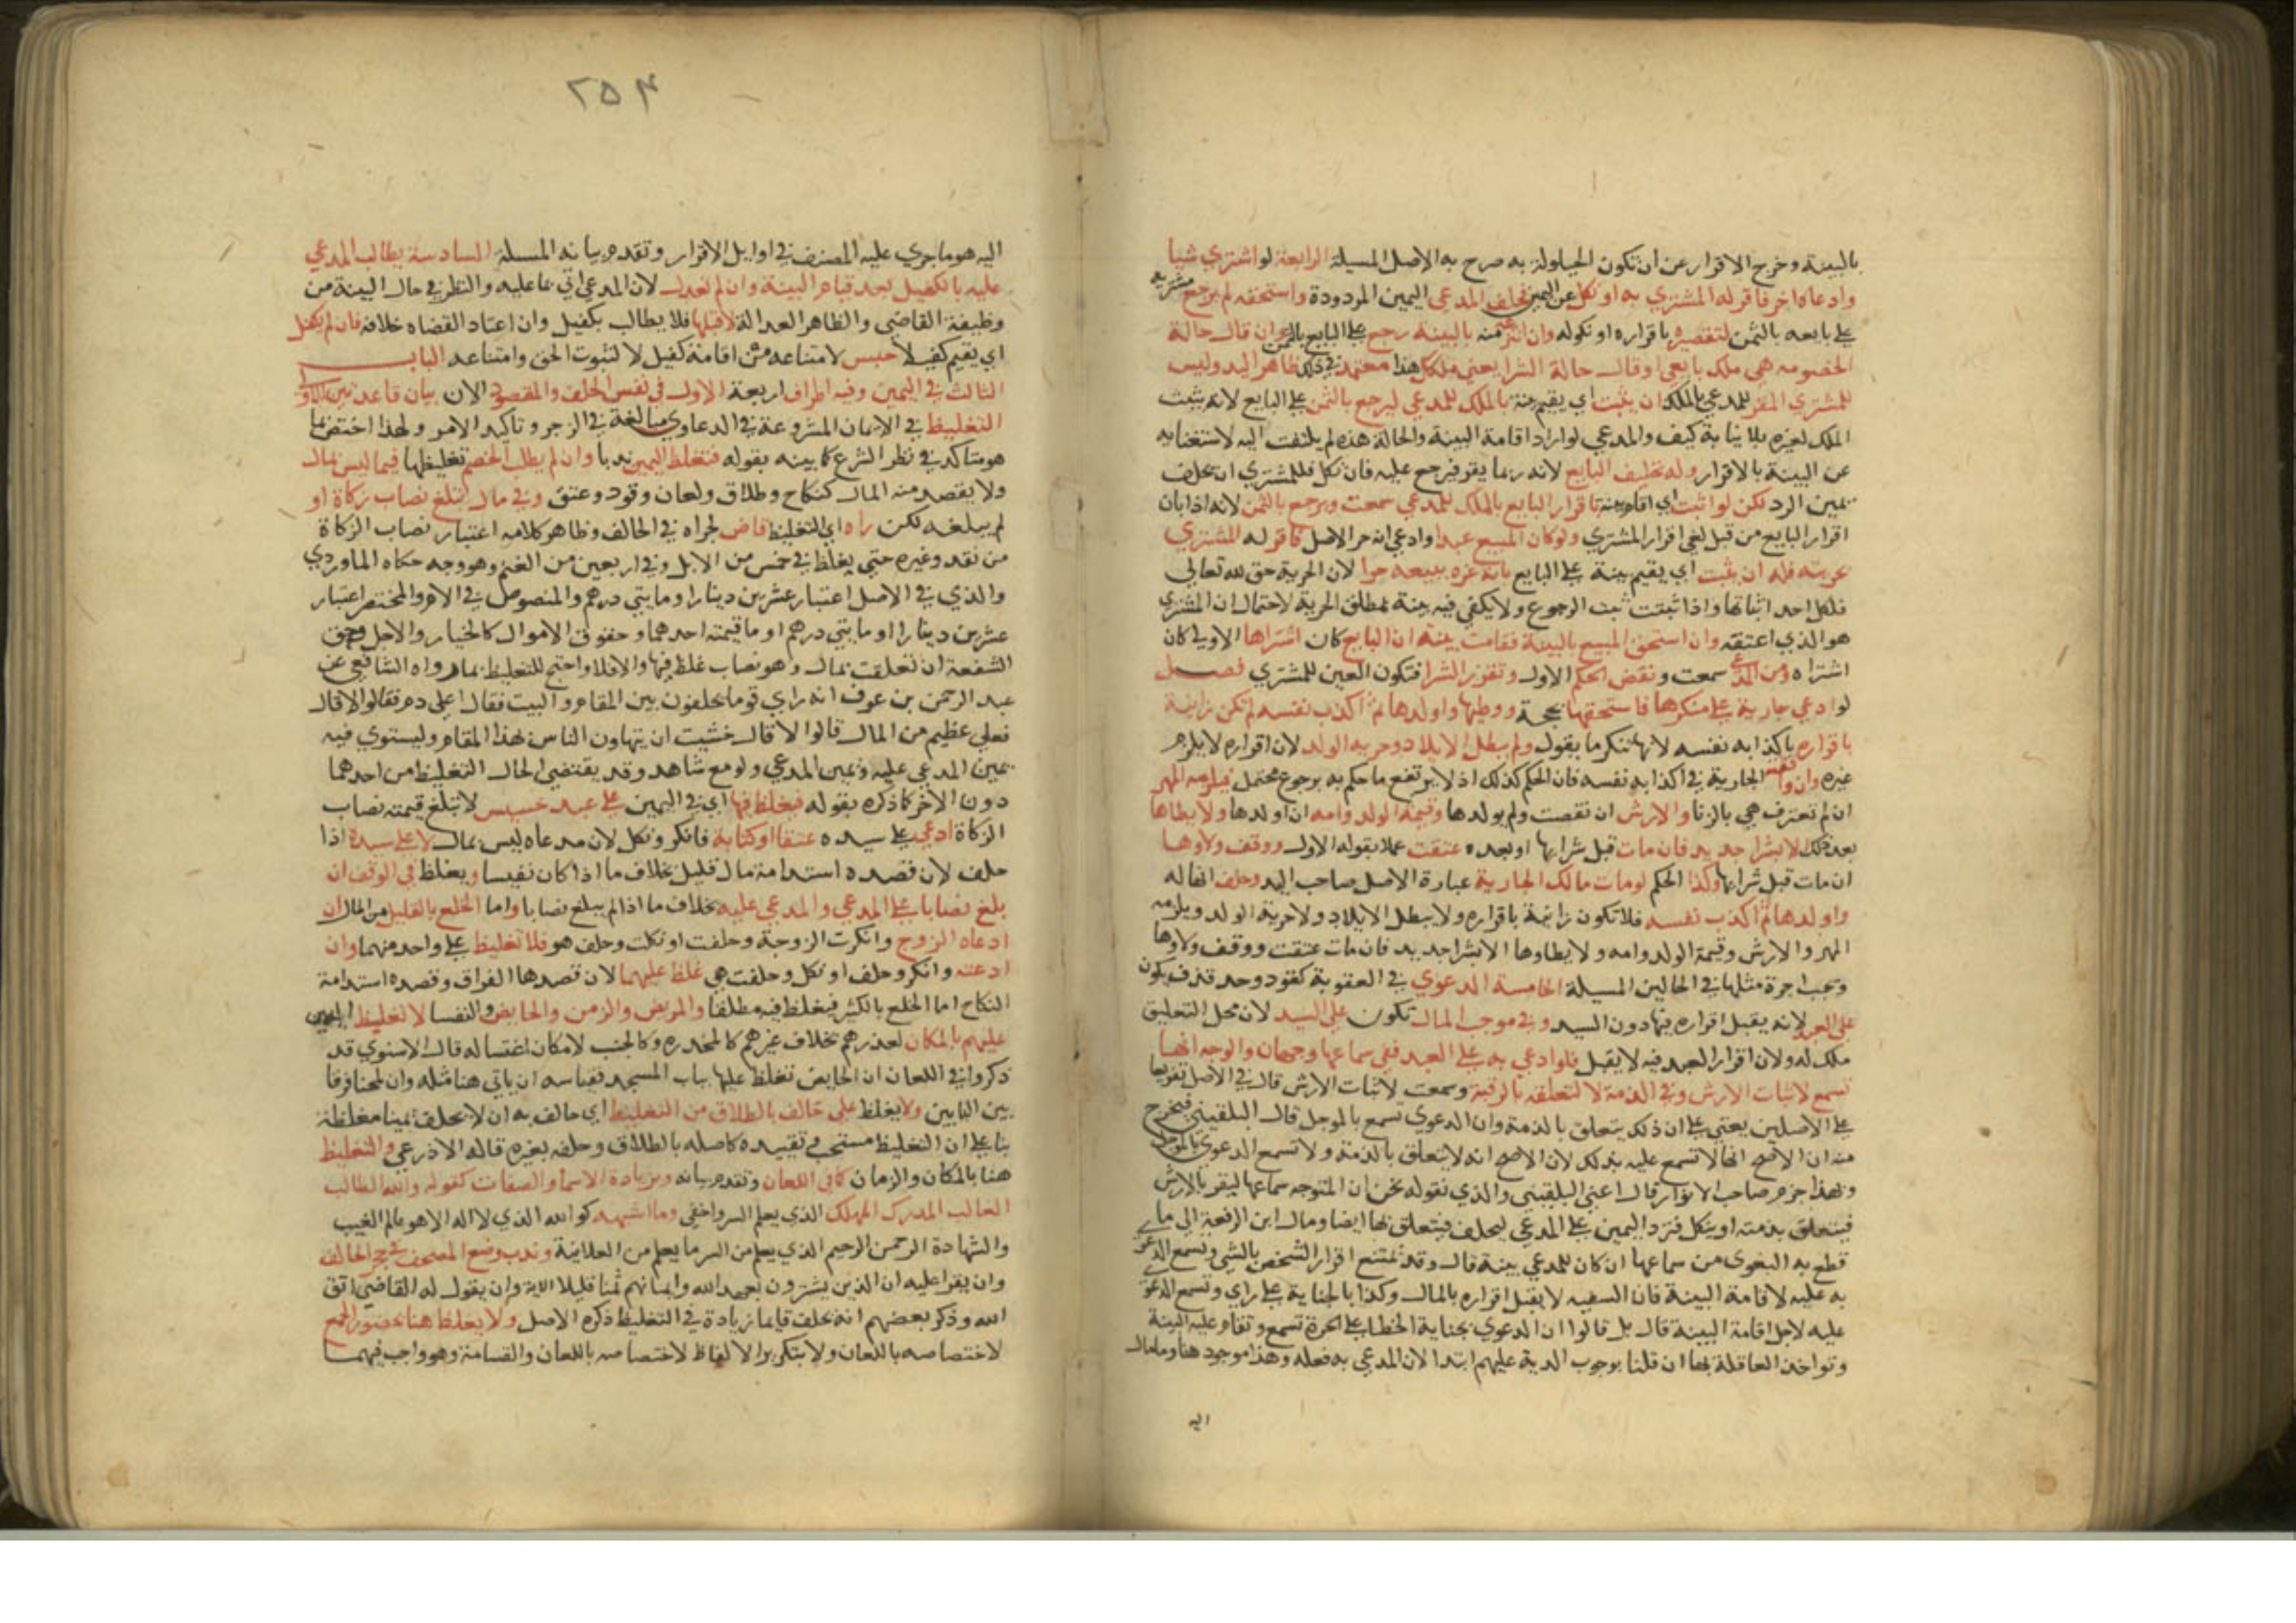 بالبينة وخرج الاقرار عن ان تكون الحيلولة به صرح به الاصل المسيلة الرابعة لو اشتري شيا
وادعاه اخر فاقر له المشتري به او نكل عن اليمين فحلف المدعي اليمين المردودة واستحقه لم يرجع مشتريه
علي بايعه بالثمن لتقصيره باقراره او نكوله وان انتزع منه بالبينة رجع علي البايع بالثمن وان قال حالة
الخصومه هي ملك بايعي او قال حالة الشرا يعني ملكك هذا معتمدا في ذلك ظاهر اليد وليس
للمشتري المقر للمدعي بالملك ان يثبت اي يقيم بينة بالملك للمدعي ليرجع بالثمن علي البايع لانه يثبت
الملك لغيره بلا نيابة كيف والمدعي لو اراد اقامة البينة والحالة هذه لم يلتفت اليه لاستغنايه
عن البينة بالاقرار وله تحليف البايع لانه ربما يقر فيرجع عليه فان نكل فللمشتري ان يحلف
يمين الرد لكن لو اثبت اي اقام بينة باقرار البايع بالملك للمدعي سمعت ويرجع بالثمن لانه اذا بان
اقرار البايع من قبل لغي اقرار المشتري ولو كان المبيع عبدا وادعي انه حر الاصل فاقر له المشتري
بحريته فله ان يثبت اي يقيم بينة علي البايع بانه غره ببيعه حرا لان الحرية حق لله تعالي
فلكل احد اثباتها واذا ثبتت ثبت الرجوع ولا يكفي فيه بينة بمطلق الحرية لاحتمال ان المشتري
هو الذي اعتقه وان استحق المبيع بالبينة فقامت بينة ان البايع كان اشتراها الاولي كان
اشتراه من المدعي سمعت ونقض الحكم الاول وتقرر الشرا فتكون العين للمشتري فصل
لو ادعي جارية علي منكرها فاستحقها بحجة ووطيها واولدها ثم اكذب نفسه لم تكن زانية
باقراره باكذابه نفسه لانها تنكر ما يقول ولم يبطل الايلاد وحرية الولد لان اقراره لا يلزم
غيره وان وافقته الجارية في اكذابه نفسه فان الحكم كذلك اذ لا يرتفع ما حكم به برجوع محتمل فيلزمه المهر
ان لم تعترف هي بالزنا والارش ان نقصت ولم يولدها وقيمة الولد وامه ان اولدها ولا يطاها
بعد ذلك الا بشرا جديد فان مات قبل شرايها او بعده عتقت عملا بقوله الاول ووقف ولاوها
ان مات قبل شرايها وكذا الحكم لو مات مالك الجارية عبارة الاصل صاحب اليد وحلف انها له
واولدها ثم اكذب نفسه فلا تكون زانية باقراره ولا يبطل الايلاد ولا حرية الولد ويلزمه
المهر والارش وقيمة الولد وامه ولا يطاوها الا بشرا جديد فان مات عتقت ووقف ولاوها
وتجب اجرة مثلها في الحالين المسيلة الخامسة الدعوي في العقوبة كقود وحد قذف يكون
علي العبد لانه يقبل اقراره فيها دون السيد وفي موجب المال تكون علي السيد لان محل التعليق
ملك له ولان اقرار العبد فيه لا يقبل فلو ادعي به علي العبد ففي سماعها وجهان والوجه انها
تسمع لاثبات الارش وفي الذمة لا لتعلقه بالرقبة وسمعت لاثبات الارش قال في الاصل تفريعا
علي الاصلين يعني علي ان ذلك يتعلق بالذمة وان الدعوي تسمع بالموجل قال البلقيني فيخرج
منه ان الاصح انها لا تسمع عليه بذلك لان الاصح انه لا يتعلق بالذمة ولا تسمع الدعوي بالموجل
وبهذا جزم صاحب الانوار قال اعني البلقيني والذي نقوله نحن ان المتوجه سماعها ليقر بالارش
فيتعلق بذمته او ينكل فترد اليمين علي المدعي ليحلف فيتعلق بها ايضا ومال ابن الرفعة الي ما
قطع به البغوي من سماعها ان كان للمدعي بينة قال وقد يمتنع اقرار الشخص بالشي وتسمع الدعوي
به عليه لاقامة البينة فان السفيه لا يقبل اقراره بالمال وكذا بالجناية علي راي وتسمع الدعوي
عليه لاجل اقامة البينة قال بل قالوا ان الدعوي بجناية الخطا علي الحرة تسمع وتقام عليه البينة
وتواخذ العاقلة بها ان قلنا بوجوب الدية عليهم ابتدا لان المدعي به فعله وهذا موجود هنا وما مال
اليه
٢٥٤
اليه هو ما جري عليه المصنف في اوايل الاقرار وتقدم بيانه المسيلة السادسة يطالب المدعي
عليه بالكفيل بعد قيام البينة وان لم تعدل لان المدعي اتي بما عليه والنظر في حال البينة من
وظيفة القاضي والظاهر العدالة لا قبلها فلا يطالب بكفيل وان اعتاد القضاه خلافه فان لم يكفل
اي يقيم كفيلا حبس لامتناعه من اقامة كفيل لا لثبوت الحق وامتناعه الباب
الثالث في اليمين وفيه اطراف اربعة الاول في نفس الحلف والمقصود الان بيان قاعدتين الاولي
التغليظ في الايمان المشروعة في الدعاوي مبالغة في الزجر وتاكيد الامر ولهذا اختص بما
هو متاكد في نظر الشرع كما بينه بقوله فتغلظ اليمين ندبا وان لم يطلب الخصم تغليظها فيما ليس بمال
ولا يقصد منه المال كنكاح وطلاق ولعان وقود وعتق وفي مال يبلغ نصاب زكاة او
لم يبلغه لكن راه اي التغليظ قاض لجراه في الحالف وظاهر كلامه اعتبار نصاب الزكاة
من نقد وغيره حتي يغلظ في خمس من الابل وفي اربعين من الغنم وهو وجه حكاه الماوردي
والذي في الاصل اعتبار عشرين دينارا وما يتي درهم والمنصوص في الام والمختصر اعتبار
عشرين دينارا او مايتي درهم او ما قيمته احدهما وحقوق الاموال كالخيار والاجل وحق
الشفعة ان تعلقت بمال وهو نصاب غلظ فيها والا فلا واحتج للتغليظ بما رواه الشافعي عن
عبد الرحمن بن عوف انه راي قوما يحلفون بين المقام والبيت فقال اعلي دم فقالوا لا قال
فعلي عظيم من المال قالوا لا قال خشيت ان يتهاون الناس بهذا المقام وليستوي فيه
يمين المدعي عليه ويمين المدعي ولو مع شاهد وقد يقتضي الحال التغليظ من احدهما
دون الاخر كما ذكره بقوله فيغلظ فيها اي في اليمين علي عبد خسيس لا تبلغ قيمته نصاب
الزكاة ادعي علي سيده عتقا او كتابة فانكر ونكل لان مدعاه ليس بمال لا علي سيده اذا
حلف لان قصده استدامة مال قليل بخلاف ما اذا كان نفيسا ويغلظ في الوقف ان
بلغ نصابا علي المدعي والمدعي عليه بخلاف ما اذا لم يبلغ نصابا واما الخلع بالقليل من المال ان
ادعاه الزوج وانكرت الزوجة وحلفت او نكلت وحلف هو فلا تغليظ علي واحد منهما وان
ادعته وانكر وحلف او نكل وحلفت هي غلظ عليهما لان قصدها الفراق وقصده استدامة
النكاح اما الخلع بالكثير فيغلظ فيه مطلقا والمريض والزمن والحايض والنفسا لا تغليظ
عليهم بالمكان لعذرهم بخلاف غيرهم كالمخدره وكالجنب لامكان اغتساله قال الاسنوي قد
ذكروا في اللعان ان الحايض تغلظ عليها بباب المسجد فقياسه ان ياتي هنا مثله وان لمحنا فرقا
بين البابين ولا يغلظ علي حالف بالطلاق من التغليظ اي حالف به ان لا يحلف يمينا مغلظة
بنا علي ان التغليظ مستحب وتقييده كاصله بالطلاق وحلفه بغيره قاله الاذرعي والتغليظ
هنا بالمكان والزمان كما في اللعان وتقدم بيانه وبزيادة الاسما والصفات كقوله والله الطالب
الغالب المدرك المهلك الذي يعلم السر واخفي وما اشبهه كوالله الذي لا اله الا هو عالم الغيب
والشهادة الرحمن الرحيم الذي يعلم من السر ما يعلم من العلانية وندب وضع المصحف في حجر الحالف
وان يقرا عليه ان الذين يشترون بعهد الله وايمانهم ثمنا قليلا الاية وان يقول له القاضي اتق
الله وذكر بعضهم انه يحلف قايما زيادة في التغليظ ذكره الاصل ولا يغلظ هنا بحضور الجمع
لاختصاصه باللعان ولا بتكرير الالفاظ لاختصاصه باللعان والقسامة وهو واجب فيهما